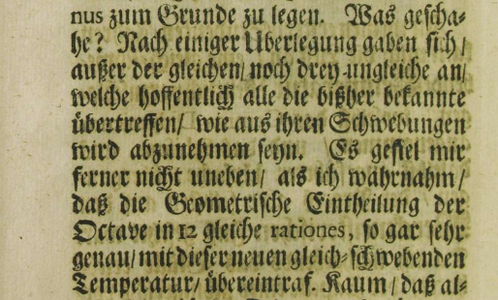 nus zum Grunde zu legen. Was gescha-
he? Nach einiger Überlegung gaben sich /
außer der gleichen / noch drey ungleiche an /
welche hoffentlich alle die bißher bekannte
übertreffen / wie aus ihren Schwebungen
wird abzunehmen seyn. Es gefiel mir
ferner nicht uneben / als ich wahrnahm /
daß die Geometrische Eintheilung der
Octave in 12 gleiche rationes, so gar sehr
genau / mit dieser neuen gleich-schwebenden
Temperatur / übereintraf. Kaum / daß al-